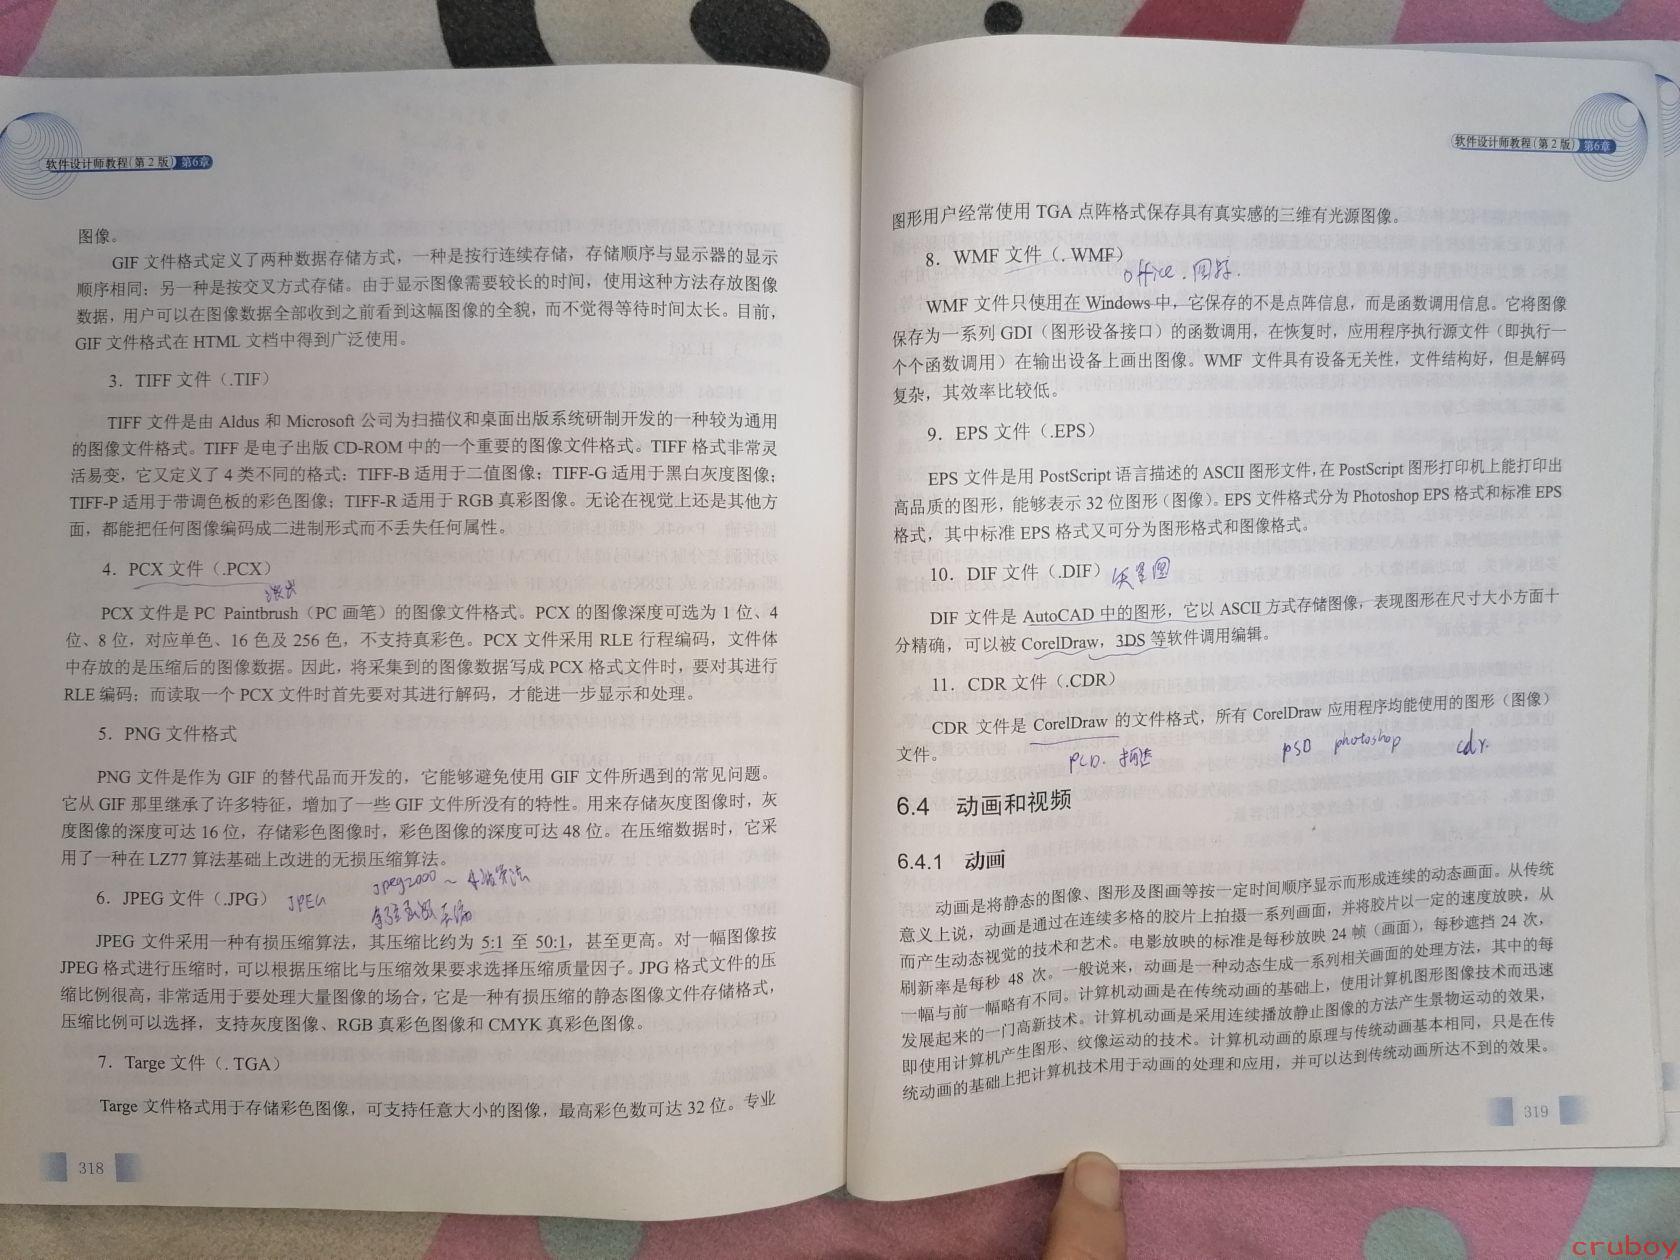 软件设计师教程(第2版) 第6章
图像。
GIF 文件格式定义了两种数据存储方式，一种是按行连续存储，存储顺序与显示器的显示
顺序相同；另一种是按交叉方式存储。由于显示图像需要较长的时间，使用这种方法存放图像
数据，用户可以在图像数据全部收到之前看到这幅图像的全貌，而不觉得等待时间太长。目前，
GIF 文件格式在 HTML 文档中得到广泛使用。
3．TIFF 文件（.TIF）
TIFF 文件是由 Aldus 和 Microsoft 公司为扫描仪和桌面出版系统研制开发的一种较为通用
的图像文件格式。TIFF 是电子出版 CD-ROM 中的一个重要的图像文件格式。TIFF 格式非常灵
活易变，它又定义了 4 类不同的格式：TIFF-B 适用于二值图像；TIFF-G 适用于黑白灰度图像；
TIFF-P 适用于带调色板的彩色图像；TIFF-R 适用于 RGB 真彩图像。无论在视觉上还是其他方
面，都能把任何图像编码成二进制形式而不丢失任何属性。
4．PCX 文件（.PCX）
PCX 文件是 PC Paintbrush（PC 画笔）的图像文件格式。PCX 的图像深度可选为 1 位、4
位、8 位，对应单色、16 色及 256 色，不支持真彩色。PCX 文件采用 RLE 行程编码，文件体
中存放的是压缩后的图像数据。因此，将采集到的图像数据写成 PCX 格式文件时，要对其进行
RLE 编码；而读取一个 PCX 文件时首先要对其进行解码，才能进一步显示和处理。
5．PNG 文件格式
PNG 文件是作为 GIF 的替代品而开发的，它能够避免使用 GIF 文件所遇到的常见问题。
它从 GIF 那里继承了许多特征，增加了一些 GIF 文件所没有的特性。用来存储灰度图像时，灰
度图像的深度可达 16 位，存储彩色图像时，彩色图像的深度可达 48 位。在压缩数据时，它采
用了一种在 LZ77 算法基础上改进的无损压缩算法。
jpeg2000 ~ 小波算法
6．JPEG 文件（.JPG） JPEG
JPEG 文件采用一种有损压缩算法，其压缩比约为 5:1 至 50:1，甚至更高。对一幅图像按
JPEG 格式进行压缩时，可以根据压缩比与压缩效果要求选择压缩质量因子。JPG 格式文件的压
缩比例很高，非常适用于要处理大量图像的场合，它是一种有损压缩的静态图像文件存储格式，
压缩比例可以选择，支持灰度图像、RGB 真彩色图像和 CMYK 真彩色图像。
7．Targe 文件（. TGA）
Targe 文件格式用于存储彩色图像，可支持任意大小的图像，最高彩色数可达 32 位。专业
318
软件设计师教程(第2版) 第6章
图形用户经常使用 TGA 点阵格式保存具有真实感的三维有光源图像。
8．WMF 文件（. WMF）
office.
WMF 文件只使用在 Windows 中，它保存的不是点阵信息，而是函数调用信息。它将图像
保存为一系列 GDI（图形设备接口）的函数调用，在恢复时，应用程序执行源文件（即执行一
个个函数调用）在输出设备上画出图像。WMF 文件具有设备无关性，文件结构好，但是解码
复杂，其效率比较低。
9．EPS 文件（.EPS）
EPS 文件是用 PostScript 语言描述的 ASCII 图形文件，在 PostScript 图形打印机上能打印出
高品质的图形，能够表示 32 位图形（图像）。EPS 文件格式分为 Photoshop EPS 格式和标准 EPS
格式，其中标准 EPS 格式又可分为图形格式和图像格式。
10．DIF 文件（.DIF） 矢量图
DIF 文件是 AutoCAD 中的图形，它以 ASCII 方式存储图像，表现图形在尺寸大小方面十
分精确，可以被 CorelDraw，3DS 等软件调用编辑。
11．CDR 文件（.CDR）
CDR 文件是 CorelDraw 的文件格式，所有 CorelDraw 应用程序均能使用的图形（图像）
文件。
PCD. PSD photoshop cdr.
6.4 动画和视频
6.4.1 动画
动画是将静态的图像、图形及图画等按一定时间顺序显示而形成连续的动态画面。从传统
意义上说，动画是通过在连续多格的胶片上拍摄一系列画面，并将胶片以一定的速度放映，从
而产生动态视觉的技术和艺术。电影放映的标准是每秒放映 24 帧（画面），每秒遮挡 24 次，
刷新率是每秒 48 次。一般说来，动画是一种动态生成一系列相关画面的处理方法，其中的每
一幅与前一幅略有不同。计算机动画是在传统动画的基础上，使用计算机图形图像技术而迅速
发展起来的一门高新技术。计算机动画是采用连续播放静止图像的方法产生景物运动的效果，
即使用计算机产生图形、纹像运动的技术。计算机动画的原理与传统动画基本相同，只是在传
统动画的基础上把计算机技术用于动画的处理和应用，并可以达到传统动画所达不到的效果。
319
cruboy